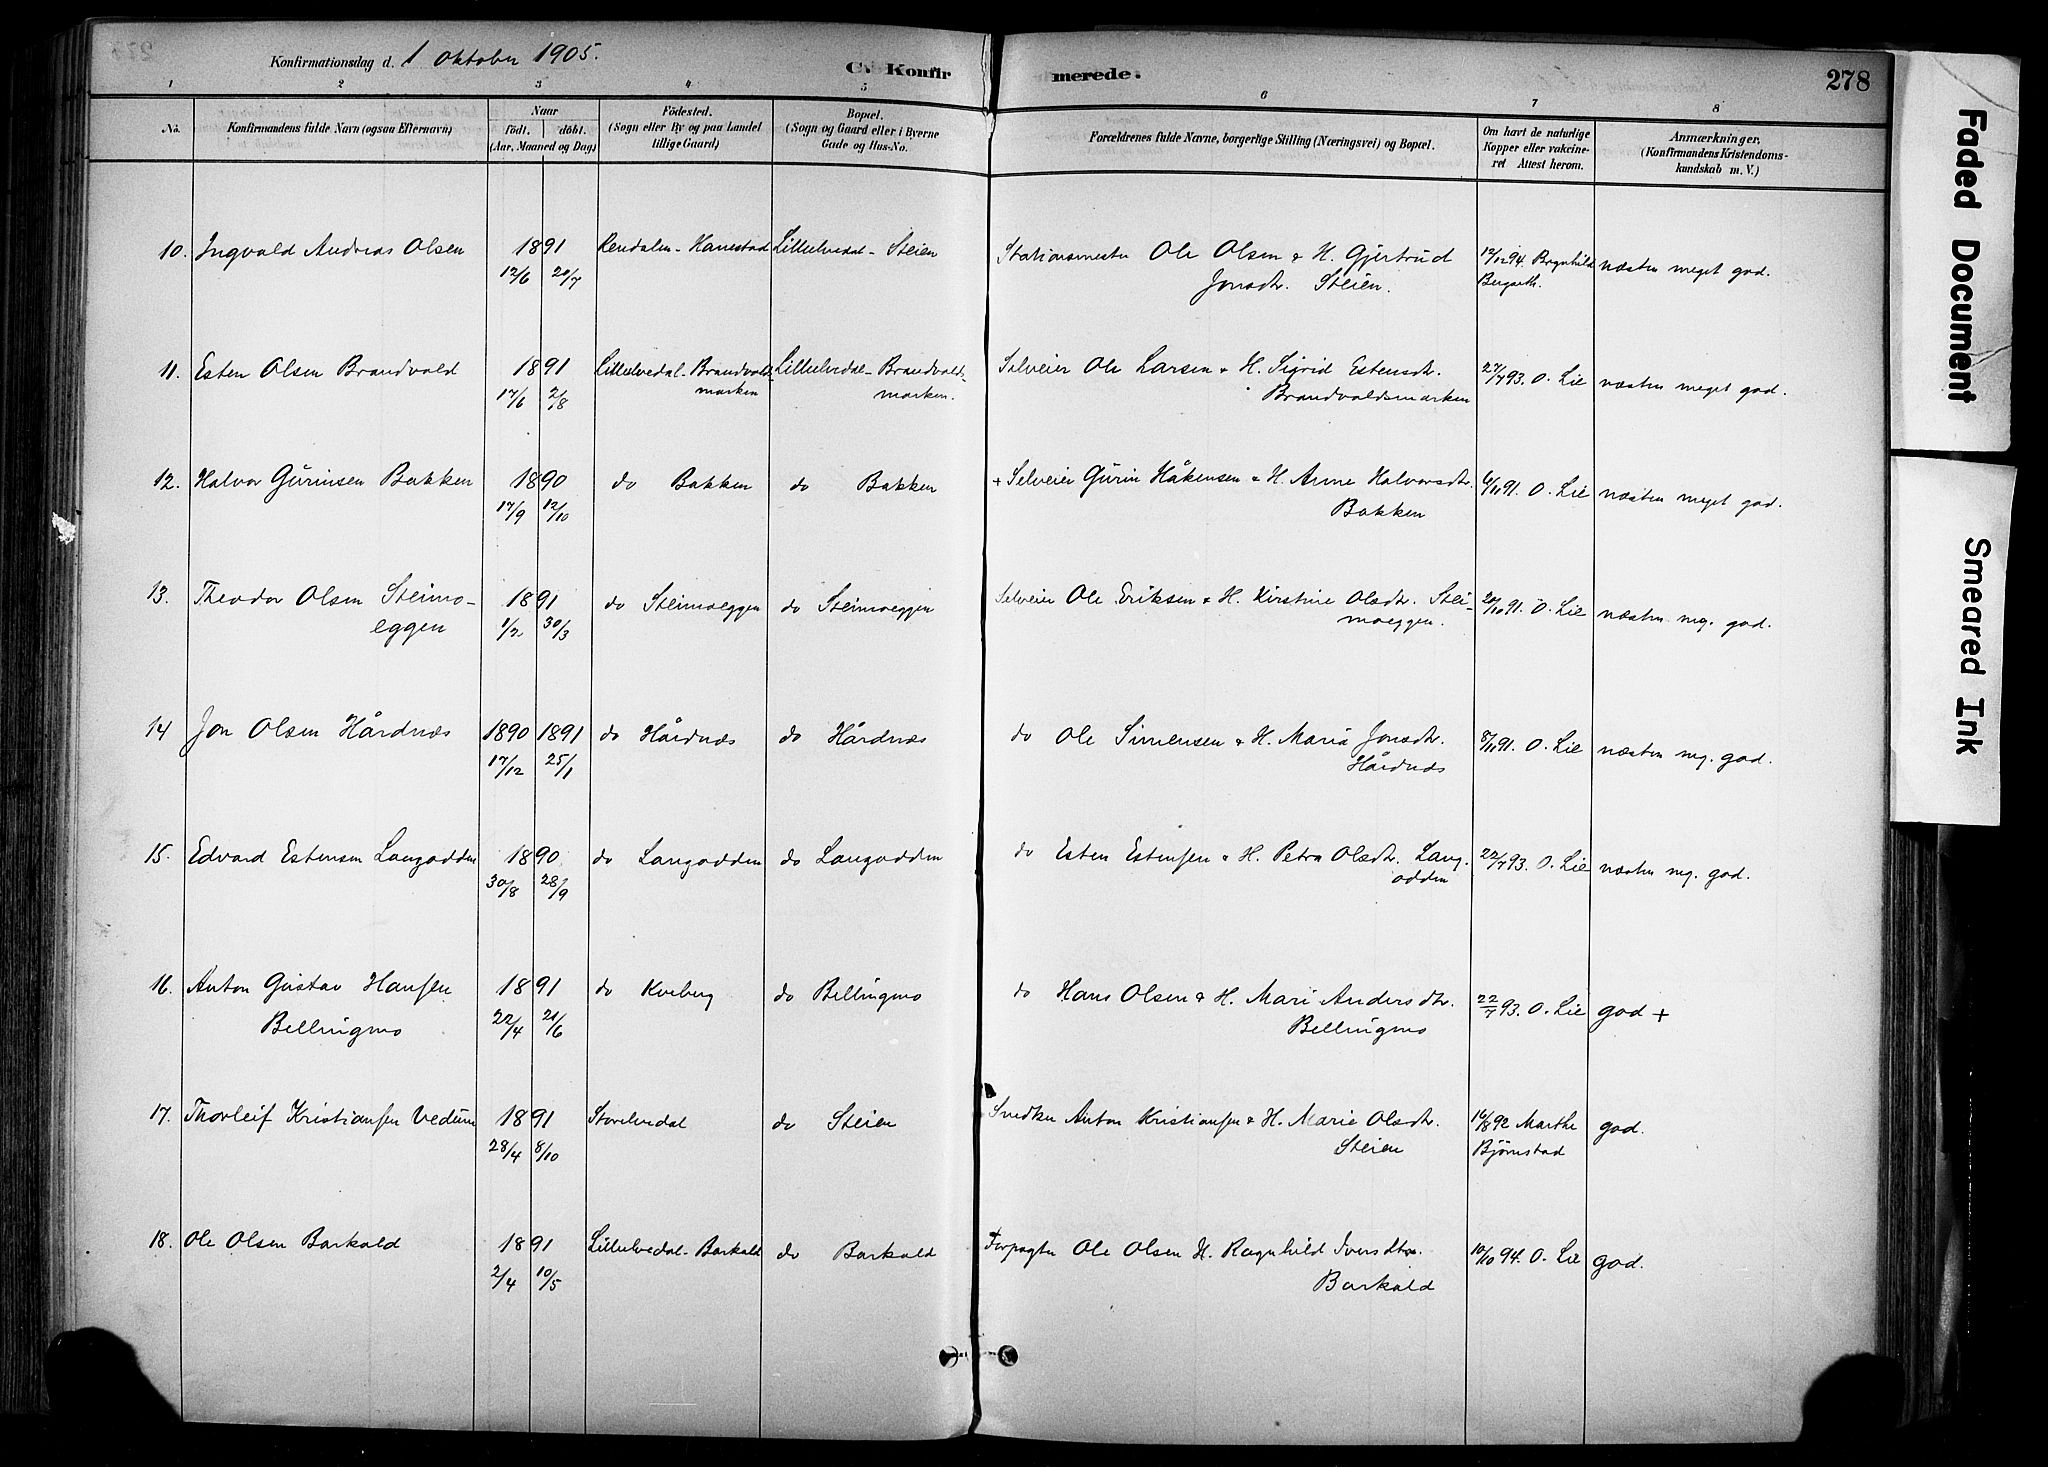 Konfirmationsdag d. 1 Oktober 1905.
C. Konfirmerede.
278
1 2 3 4 5 6 7 8
No.
Konfirmandens fulde Navn (ogsaa Efternavn)
Naar
födt. döbt.
(Aar, Maaned og Dag)
Födested.
(Sogn eller By og paa Landet
tillige Gaard)
Bopæl.
(Sogn og Gaard eller i Byerne
Gade og Hus-No.
Forældrenes fulde Navne, borgerlige Stilling (Næringsvei) og Bopæl.
Om havt de naturlige
Kopper eller vakcine-
ret Attest herom.
Anmærkninger,
(Konfirmandens Kristendoms-
kundskab m. V.)
10. Ingvald Andreas Olsen 1891 Rendalen - Hanestad Lillelvedal - Steien Stationsmester Ole Olsen & H. Gjertrud 12/12 94. Bergnhild næsten meget god.
12/6 20/7 Jonsdtr. Steien. Bergseth.
11. Esten Olsen Brandvold 1891 Lillelvedal - Brandvold- Lillelvedal - Brandvold- Selveier Ole Larsen & H. Sigrid Estensdtr. 27/7 93. O. Lie næsten meget god.
17/6 2/8 marken marken. Brandvoldsmarken
12. Halvor Gürinsen Bakken 1890 do Bakken do Bakken + Selveier Gürin Håkensen & H. Anne Halvorsdtr. 6/11 91. O. Lie næsten meget god.
17/9 12/10 Bakken
13. Theodor Olsen Steimo- 1891 do Steimoeggen do Steimoeggen Selveier Ole Eriksen & H. Kirstine Olsdtr. Stei- 20/10 91. O. Lie næsten meg. god.
eggen 1/2 30/3 moeggen.
14 Jon Olsen Hårdnæs 1890 1891 do Hårdnæs do Hårdnæs do Ole Simensen & H. Maria Jonsdtr. 8/11 91. O. Lie næsten meg. god.
17/12 25/1 Hårdnæs
15. Edvard Estensen Langodden 1890 do Langodden do Langodden do Esten Estensen & H. Petra Olsdtr. Lang- 22/7 93. O. Lie næsten meg. god.
30/8 28/9 odden
16. Anton Gustav Hansen 1891 do Kveberg do Bellingmo do Hans Olsen & H. Mari Andersdtr. 22/7 93. O. Lie god +
Bellingmo 22/4 21/6 Bellingmo
17. Thorleif Kristiansen Vedum 1891 Storelvedal do Steien Snedker Anton Kristiansen & H. Marie Olsdtr. 16/8 92 Marthe god.
28/4 8/10 Steien Bjørnstad
18. Ole Olsen Barkald 1891 Lillelvedal - Barkald do Barkald Forpagter Ole Olsen H. Ragnhild Iversdtr. 10/10 94. O. Lie god.
2/4 10/5 Barkald
Faded Document
Smeared Ink